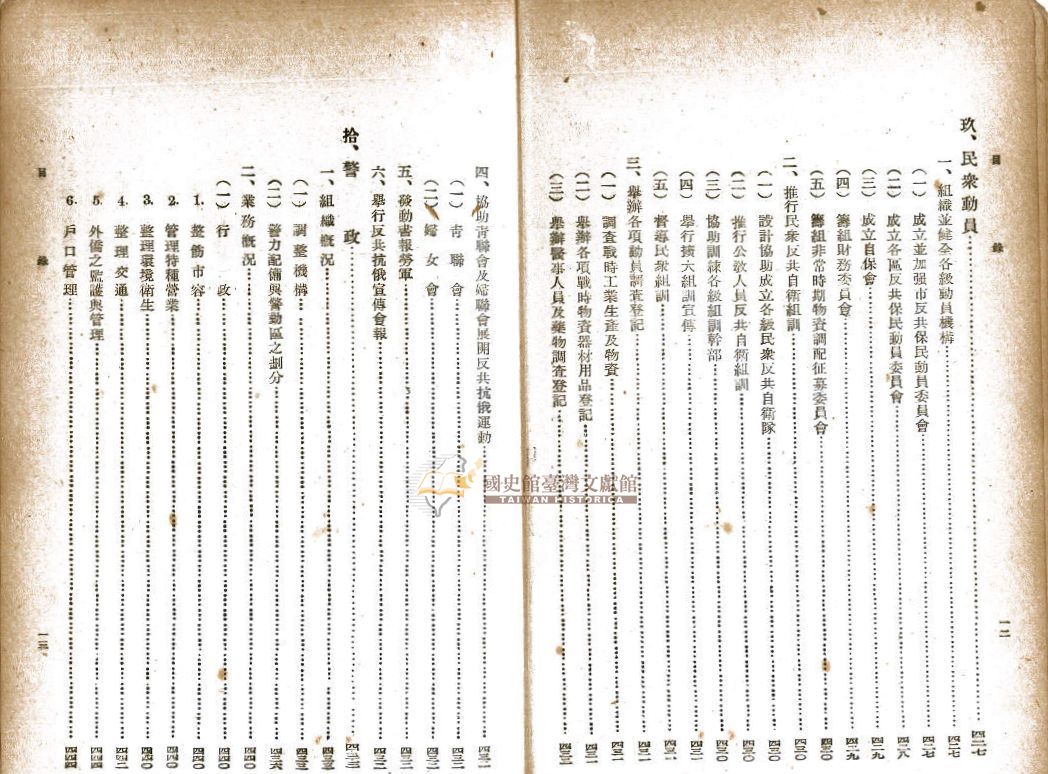 目 錄
玖、民衆動員……四二七
一、組織並健全各級動員機構……四二七
（一）成立並加强市反共保民動員委員會……四二七
（二）成立各區反共保民動員委員會……四二八
（三）成立自保會……四二九
（四）籌組財務委員會……四二九
（五）籌組非常時期物資調配征募委員會……四三〇
二、推行民衆反共自衛組訓……四三〇
（一）設計協助成立各級民衆反共自衛隊……四三〇
（二）推行公教人員反共自衛組訓……四三〇
（三）協助訓練各級組訓幹部……四三〇
（四）舉行擴大組訓宣傳……四三一
（五）督導民衆組訓……四三一
三、舉辦各項動員調查登記……四三一
（一）調查戰時工業生產及物資……四三一
（二）舉辦各項戰時物資器材用品登記……四三一
（三）舉辦醫事人員及藥物調查登記……四三二
一二
四、協助青聯會及婦聯會展開反共抗俄運動……四三二
（一）青聯會……四三二
（二）婦女會……四三二
五、發動書報勞軍……四三二
六、舉行反共抗俄宣傳會報……四三二
拾、警 政……四三三
一、組織概況……四三三
（一）調整機構……四三三
（二）警力配備與警勤區之劃分……四三六
二、業務概況……四四〇
（一）行 政……四四〇
1. 整飭市容……四四〇
2. 管理特種營業……四四〇
3. 整理環境衛生……四四〇
4. 整理交通……四四二
5. 外僑之監護與管理……四四四
6. 戶口管理……四四四
目 錄
一三
國史館臺灣文獻館
TAIWAN HISTORICA